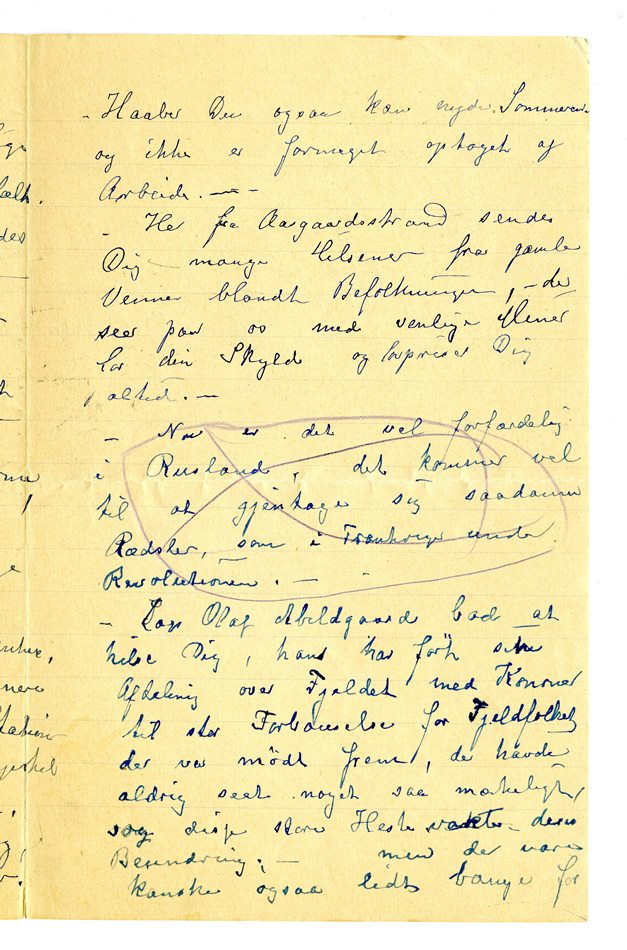 - Haaber Du ogsaa kan nyde Sommeren
og ikke er formeget optaget af
Arbeide. — -
- Her fra Aasgaardsstrand sendes
Dig mange Hilsener fra gamle
Venner blandt Befolkningen, - de
seer paa os med venlige Miner
for din Skyld og lovpriser Dig
altid. —
- Nu er det vel forfærdelig
i Rusland, det kommer vel
til at gjentage sig saadanne
Rædsler, som i Frankrige under
Revolutionen. — -
- Olaf Abildgaard bad at
hilse Dig, han har ført sin
Afdeling over Fjeldet med Kanoner
til stor Forbauselse for Fjeldfolket
der var mødt frem, de havde
aldrig seet noget saa mærkeligt,
og disse store Heste vakte deres
Beundring; — men de vare
kanske ogsaa lidt bange for